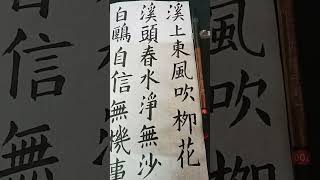 溪上東風吹柳花
溪頭春水淨無沙
白鷗自信無機事